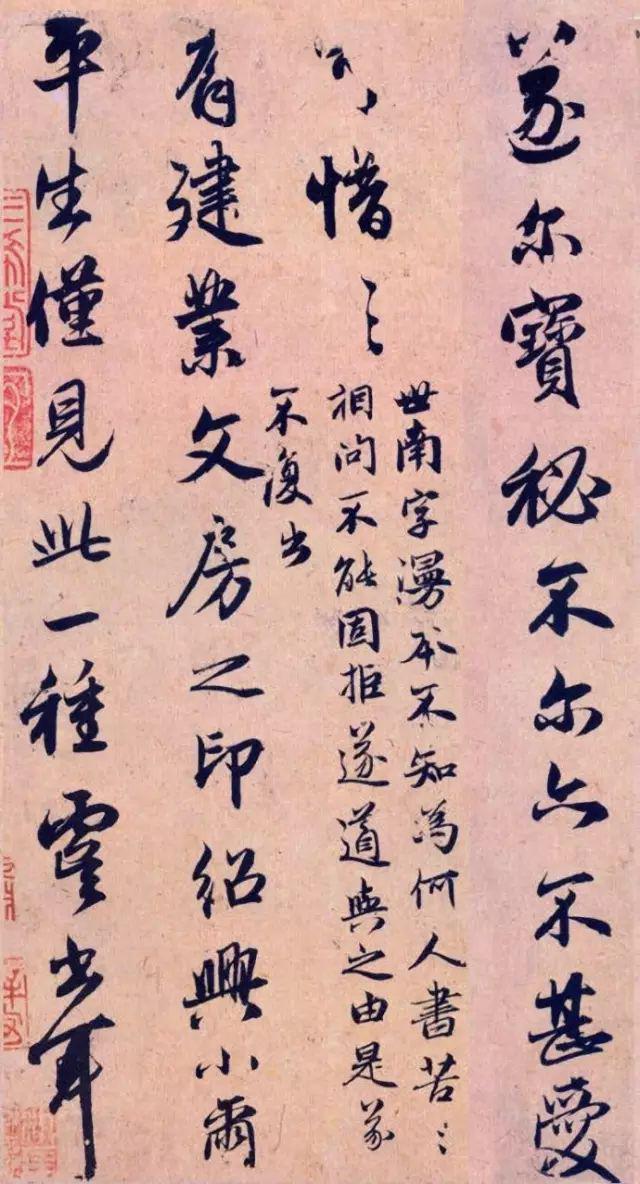 遂尔寶秘不尔亦不甚愛
可惜〻
世南字漫本不知為何人書苦〻
相問不能固拒遂道與之由是遂
不復出
有建業文房之印紹興小爾
平生僅見此一種虞書耳